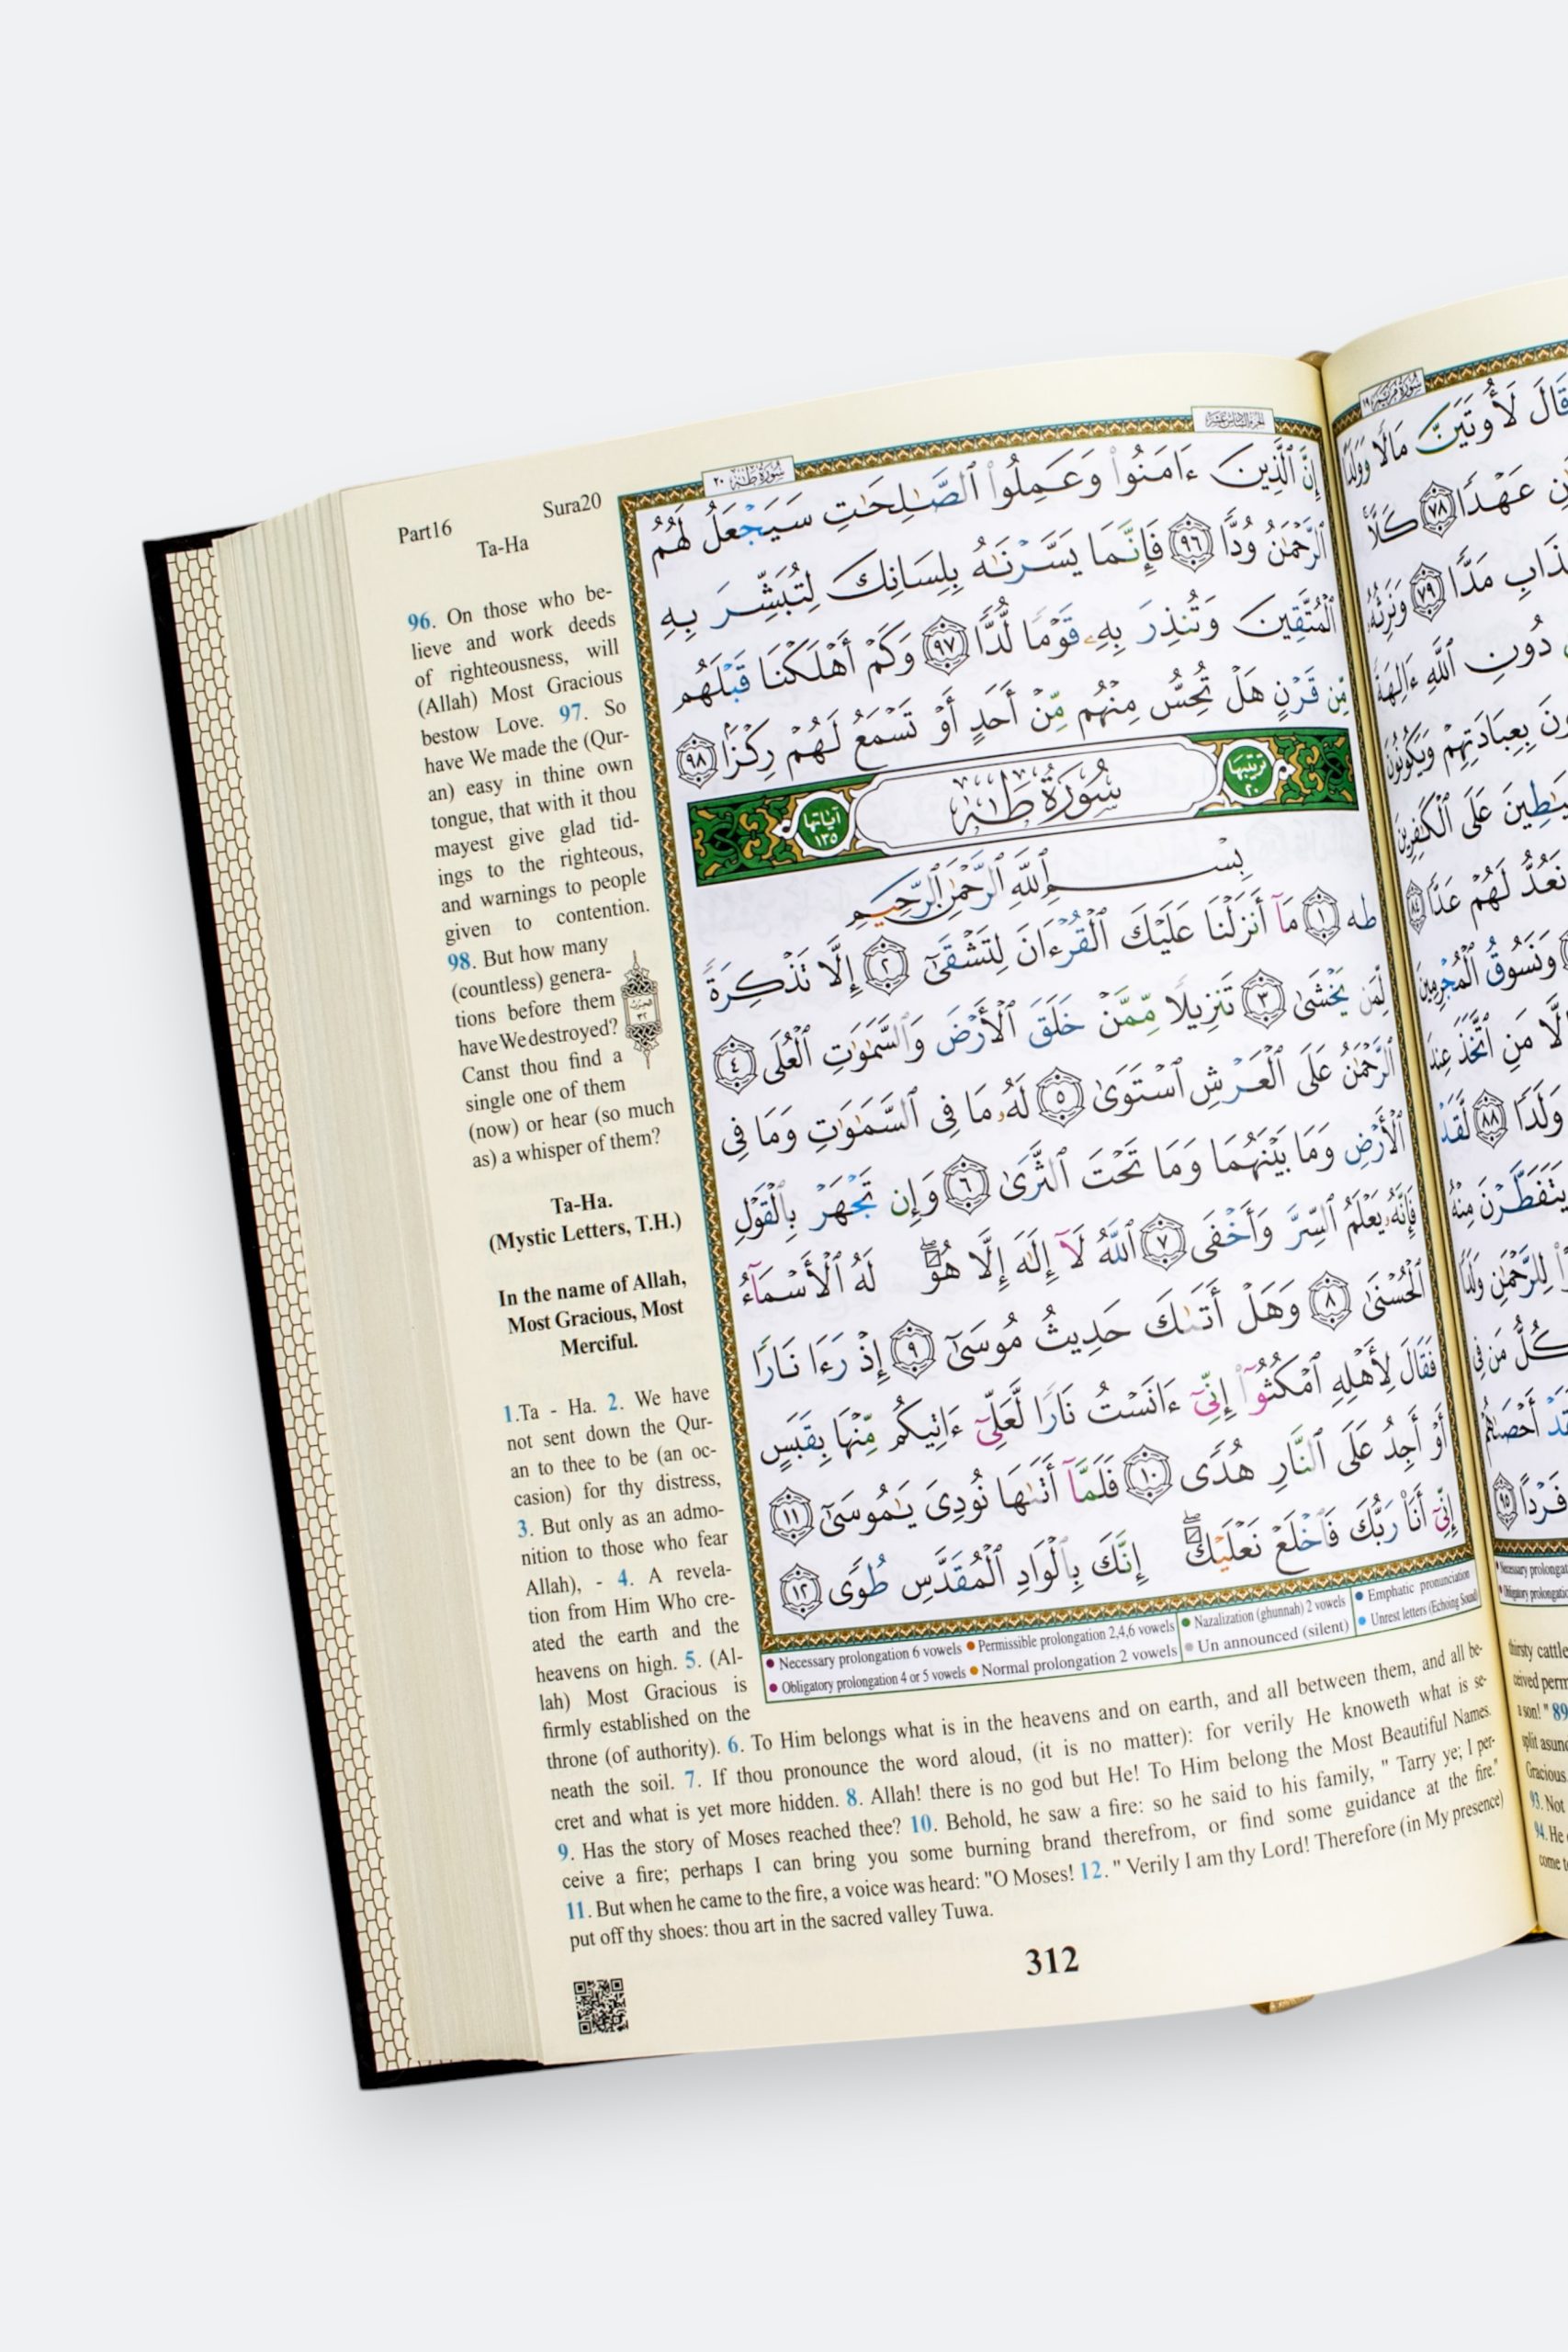 Part16
Sura20
Ta-Ha
سورة طه ٢٠
الجزء السادس عشر
إِنَّ ٱلَّذِينَ ءَامَنُوا۟ وَعَمِلُوا۟ ٱلصَّـٰلِحَـٰتِ سَيَجْعَلُ لَهُمُ
ٱلرَّحْمَـٰنُ وُدًّا ٩٦ فَإِنَّمَا يَسَّرْنَـٰهُ بِلِسَانِكَ لِتُبَشِّرَ بِهِ
ٱلْمُتَّقِينَ وَتُنذِرَ بِهِۦ قَوْمًا لُّدًّا ٩٧ وَكَمْ أَهْلَكْنَا قَبْلَهُم
مِّن قَرْنٍ هَلْ تُحِسُّ مِنْهُم مِّنْ أَحَدٍ أَوْ تَسْمَعُ لَهُمْ رِكْزًۢا ٩٨
ترتيبها ٢٠
سُورَةُ طه
آياتها ١٣٥
بِسْمِ ٱللَّهِ ٱلرَّحْمَـٰنِ ٱلرَّحِيمِ
طه ١ مَآ أَنزَلْنَا عَلَيْكَ ٱلْقُرْءَانَ لِتَشْقَىٰٓ ٢ إِلَّا تَذْكِرَةً
لِّمَن يَخْشَىٰ ٣ تَنزِيلًا مِّمَّنْ خَلَقَ ٱلْأَرْضَ وَٱلسَّمَـٰوَٰتِ ٱلْعُلَى ٤
ٱلرَّحْمَـٰنُ عَلَى ٱلْعَرْشِ ٱسْتَوَىٰ ٥ لَهُۥ مَا فِى ٱلسَّمَـٰوَٰتِ وَمَا فِى
ٱلْأَرْضِ وَمَا بَيْنَهُمَا وَمَا تَحْتَ ٱلثَّرَىٰ ٦ وَإِن تَجْهَرْ بِٱلْقَوْلِ
فَإِنَّهُۥ يَعْلَمُ ٱلسِّرَّ وَأَخْفَى ٧ ٱللَّهُ لَآ إِلَـٰهَ إِلَّا هُوَ ۖ لَهُ ٱلْأَسْمَآءُ
ٱلْحُسْنَىٰ ٨ وَهَلْ أَتَىٰكَ حَدِيثُ مُوسَىٰٓ ٩ إِذْ رَءَا نَارًا
فَقَالَ لِأَهْلِهِ ٱمْكُثُوٓا۟ إِنِّىٓ ءَانَسْتُ نَارًا لَّعَلِّىٓ ءَاتِيكُم مِّنْهَا بِقَبَسٍ
أَوْ أَجِدُ عَلَى ٱلنَّارِ هُدًى ١٠ فَلَمَّآ أَتَىٰهَا نُودِىَ يَـٰمُوسَىٰٓ ١١
إِنِّىٓ أَنَا۠ رَبُّكَ فَٱخْلَعْ نَعْلَيْكَ ۖ إِنَّكَ بِٱلْوَادِ ٱلْمُقَدَّسِ طُوًى ١٢
● Necessary prolongation 6 vowels ● Permissible prolongation 2,4,6 vowels ● Nazalization (ghunnah) 2 vowels ● Emphatic pronunciation
● Obligatory prolongation 4 or 5 vowels ● Normal prolongation 2 vowels ● Un announced (silent) ● Unrest letters (Echoing Sound)
96. On those who be-
lieve and work deeds
of righteousness, will
(Allah) Most Gracious
bestow Love. 97. So
have We made the (Qur-
an) easy in thine own
tongue, that with it thou
mayest give glad tid-
ings to the righteous,
and warnings to people
given to contention.
98. But how many
(countless) genera-
tions before them
have We destroyed?
Canst thou find a
single one of them
(now) or hear (so much
as) a whisper of them?
Ta-Ha.
(Mystic Letters, T.H.)
In the name of Allah,
Most Gracious, Most
Merciful.
1.Ta - Ha. 2. We have
not sent down the Qur-
an to thee to be (an oc-
casion) for thy distress,
3. But only as an admo-
nition to those who fear
Allah), - 4. A revela-
tion from Him Who cre-
ated the earth and the
heavens on high. 5. (Al-
lah) Most Gracious is
firmly established on the
throne (of authority). 6. To Him belongs what is in the heavens and on earth, and all between them, and all be-
neath the soil. 7. If thou pronounce the word aloud, (it is no matter): for verily He knoweth what is se-
cret and what is yet more hidden. 8. Allah! there is no god but He! To Him belong the Most Beautiful Names.
9. Has the story of Moses reached thee? 10. Behold, he saw a fire: so he said to his family, " Tarry ye; I per-
ceive a fire; perhaps I can bring you some burning brand therefrom, or find some guidance at the fire."
11. But when he came to the fire, a voice was heard: "O Moses! 12. " Verily I am thy Lord! Therefore (in My presence)
put off thy shoes: thou art in the sacred valley Tuwa.
312